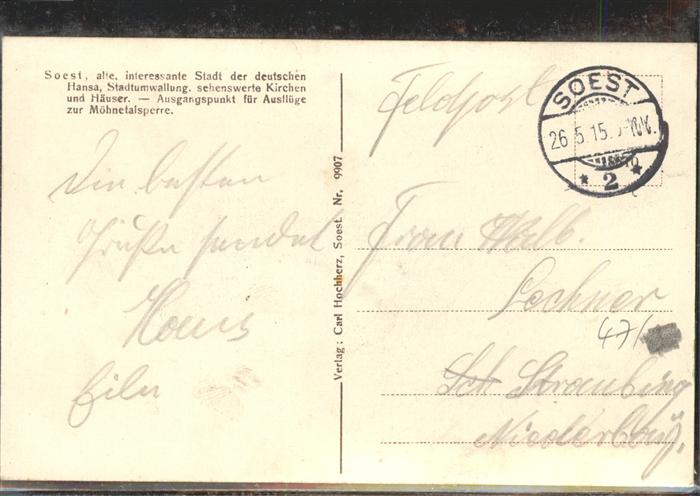 Soest, alte, interessante Stadt der deutschen
Hansa, Stadtumwallung, sehenswerte Kirchen
und Häuser. — Ausgangspunkt für Ausflüge
zur Möhnetalsperre.
Die besten
Grüße sendet
Hans
Verlag: Carl Hochherz, Soest. Nr. 9907
Feldpost
SOEST
26.5.15
* 2 *
Frau Walb.
Lechner
47/
Straubing
Niederbay.